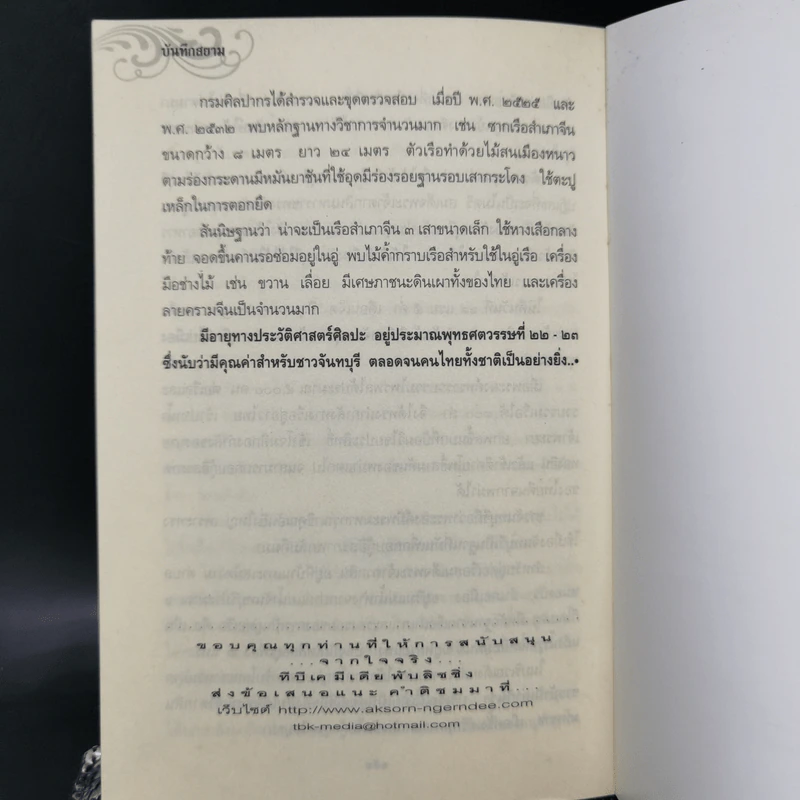 บันทึกสยาม
กรมศิลปากรได้สำรวจและขุดตรวจสอบ เมื่อปี พ.ศ. ๒๕๒๕ และ
พ.ศ. ๒๕๓๒ พบหลักฐานทางวิชาการจำนวนมาก เช่น ซากเรือสำเภาจีน
ขนาดกว้าง ๘ เมตร ยาว ๒๔ เมตร ตัวเรือทำด้วยไม้สนเมืองหนาว
ตามร่องกระดานมีหมันยาชันที่ใช้อุดมีร่องรอยฐานรอบเสากระโดง ใช้ตะปู
เหล็กในการตอกยึด
สันนิษฐานว่า น่าจะเป็นเรือสำเภาจีน ๓ เสาขนาดเล็ก ใช้หางเสือกลาง
ท้าย จอดขึ้นคานรอซ่อมอยู่ในอู่ พบไม้ค้ำกราบเรือสำหรับใช้ในอู่เรือ เครื่อง
มือช่างไม้ เช่น ขวาน เลื่อย มีเศษภาชนะดินเผาทั้งของไทย และเครื่อง
ลายครามจีนเป็นจำนวนมาก
มีอายุทางประวัติศาสตร์ศิลปะ อยู่ประมาณพุทธศตวรรษที่ ๒๒ - ๒๓
ซึ่งนับว่ามีคุณค่าสำหรับชาวจันทบุรี ตลอดจนคนไทยทั้งชาติเป็นอย่างยิ่ง..•
ขอบคุณทุกท่านที่ให้การสนับสนุน
...จากใจจริง...
ทีบีเค มีเดีย พับลิชชิ่ง
ส่งข้อเสนอแนะ คำติชมมาที่...
เว็บไซต์ http://www.aksorn-ngerndee.com
tbk-media@hotmail.com